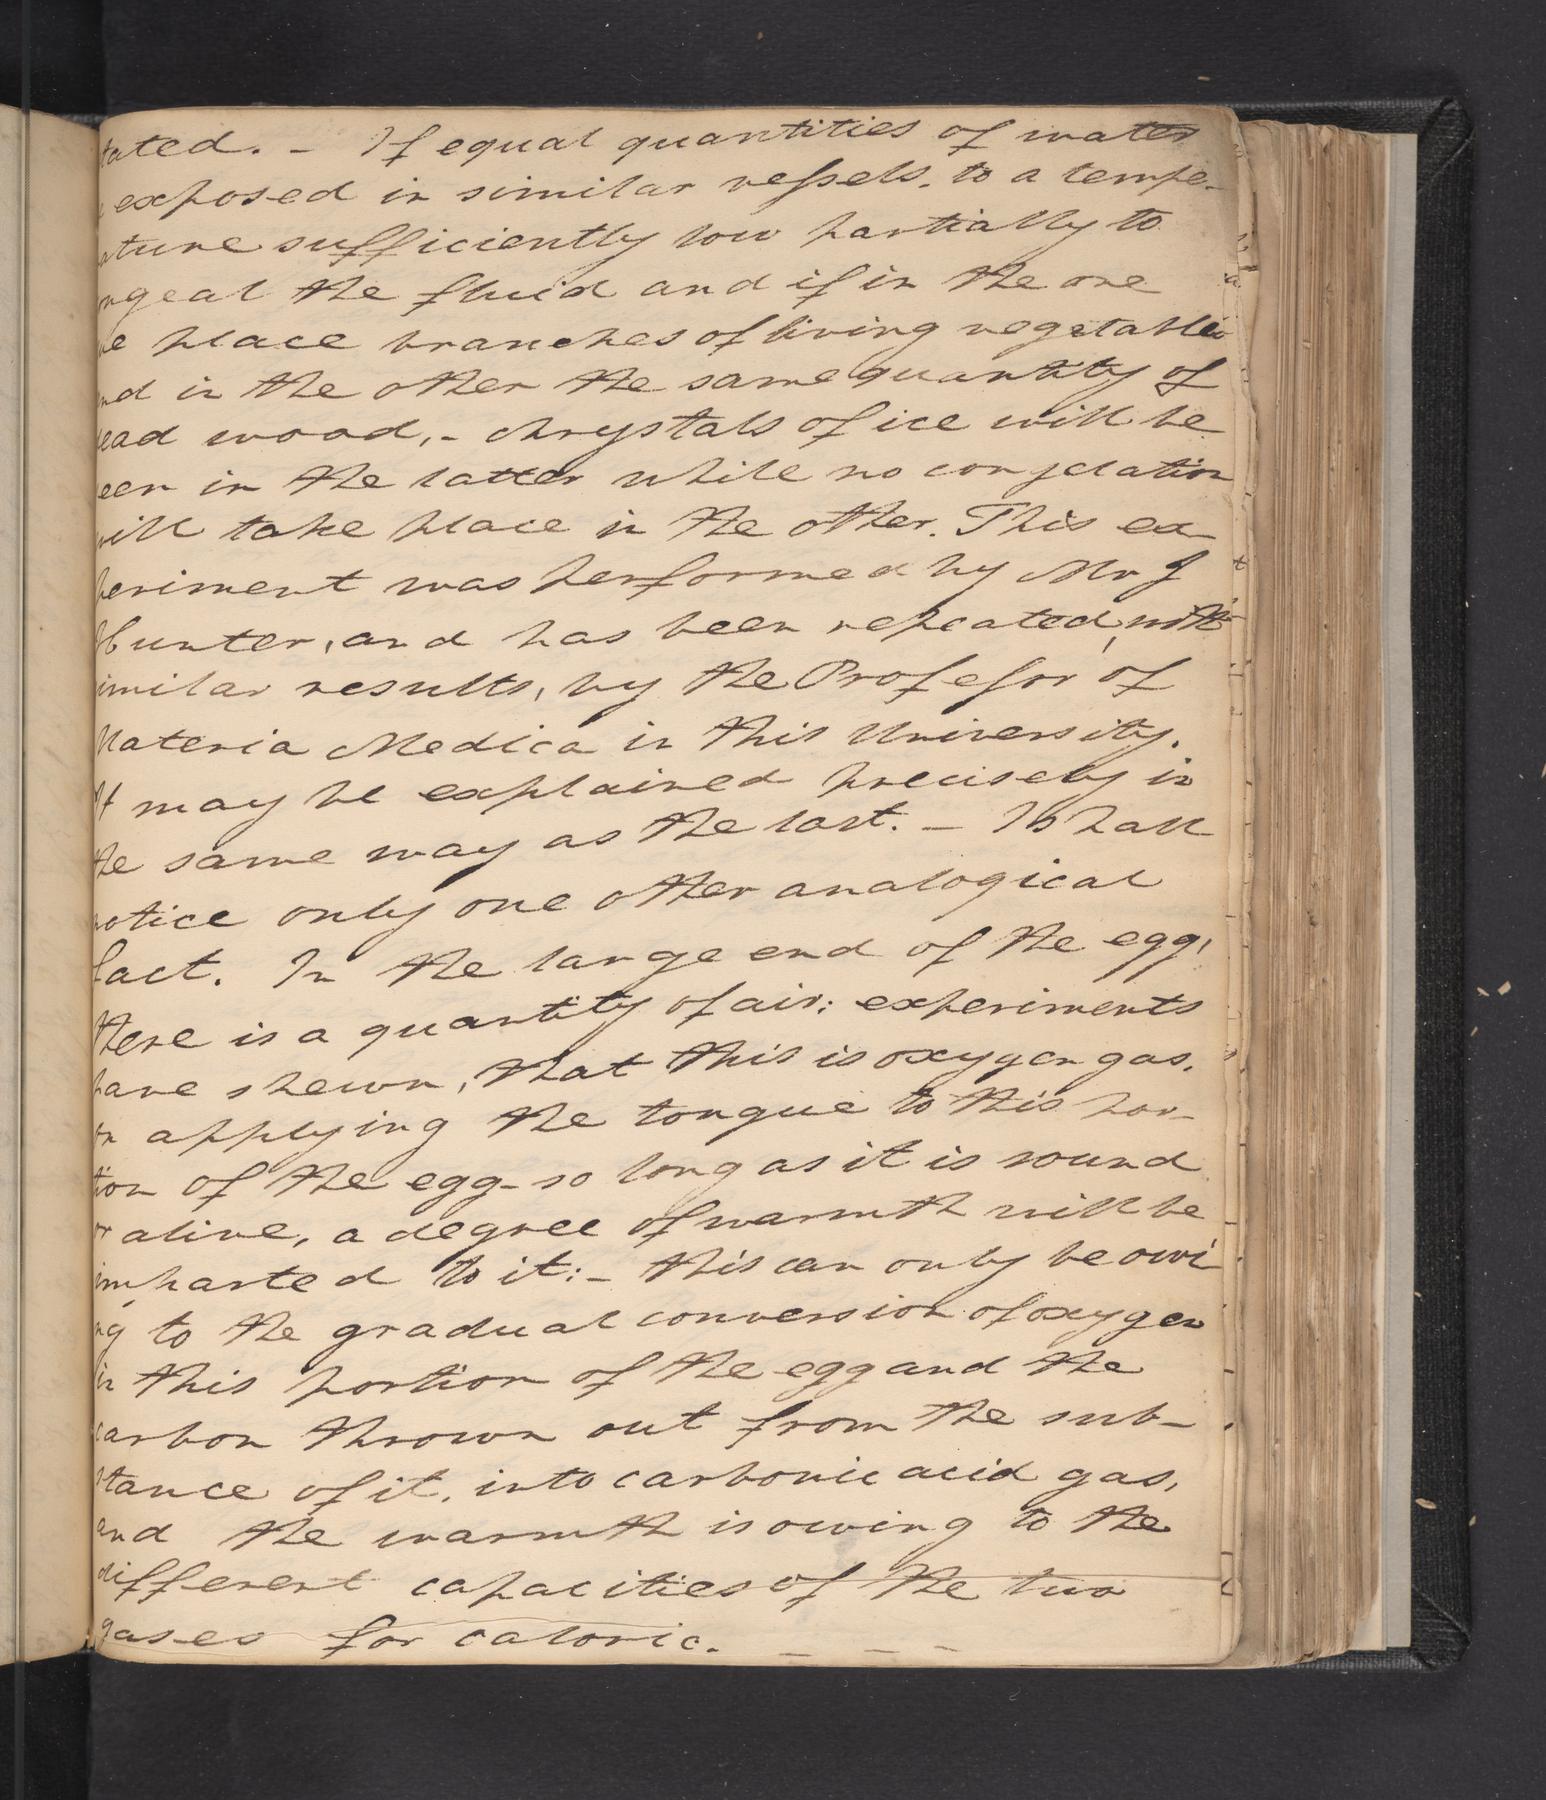 tated. - If equal quantities of water
exposed in similar vessels. to a tempe-
ature sufficiently low partially to
ngeal the fluid and if in the one
we place branches of living vegetables
nd in the other the same quantity of
dead wood, - chrystals of ice will be
een in the latter while no congelation
will take place in the other. This ex-
periment was performed by Mr J
Hunter, and has been repeated, with
imilar results, by the Professor of
Materia Medica in this University.
It may be explained precisely in
the same way as the last. - I shall
notice only one other analogical
fact. In the large end of the egg,
there is a quantity of air: experiments
have shewn, that this is oxygen gas.
on applying the tongue to this por-
tion of the egg - so long as it is sound
or alive, a degree of warmth will be
imparted to it: - this can only be owi
ng to the gradual conversion of oxygen
in this portion of the egg and the
carbon thrown out from the sub-
stance of it, into carbonic acid gas,
and the warmth is owing to the
different capacities of the two
gases for caloric. - - -